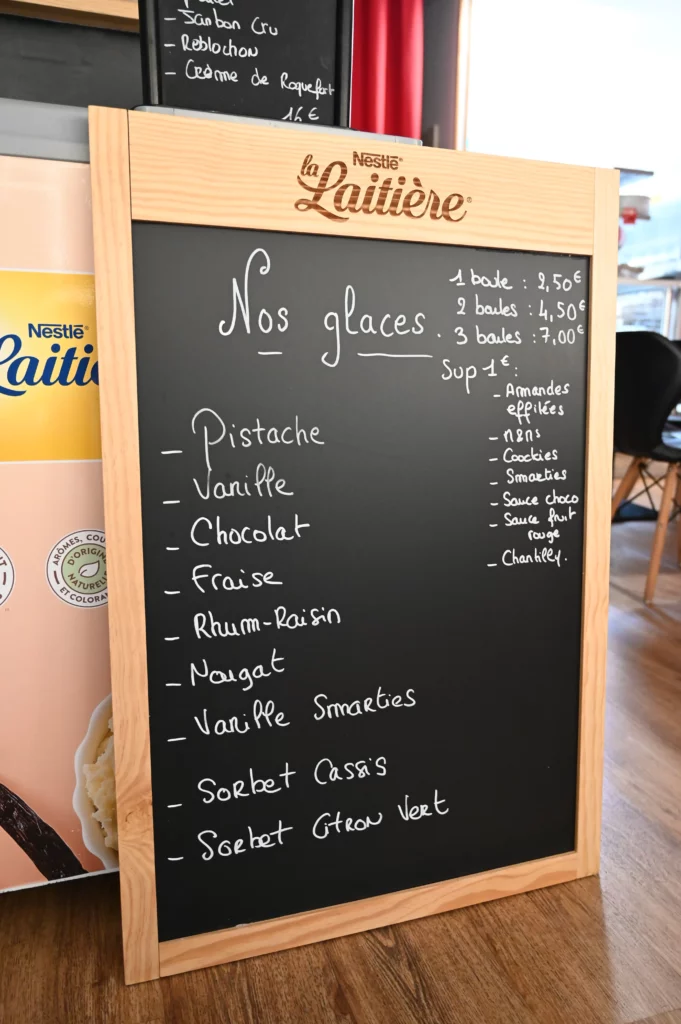 - Janbon Cru
- Reblochon
- Crème de Roquefort
16 €
Nestlé
la Laitière
Nos glaces.
1 boule : 2,50€
2 boules : 4,50€
3 boules : 7,00€
Sup 1€ :
- Amandes
effilées
- m&ms
- Coockies
- Smarties
- Sauce choco
- Sauce fruit
rouge
- Chantilly.
- Pistache
- Vanille
- Chocolat
- Fraise
- Rhum-Raisin
- Nougat
- Vanille Smarties
- Sorbet Cassis
- Sorbet Citron Vert
Nestlé
Laitiè
ARÔMES, COU
D'ORIGIN
NATUREL
ET COLORAN